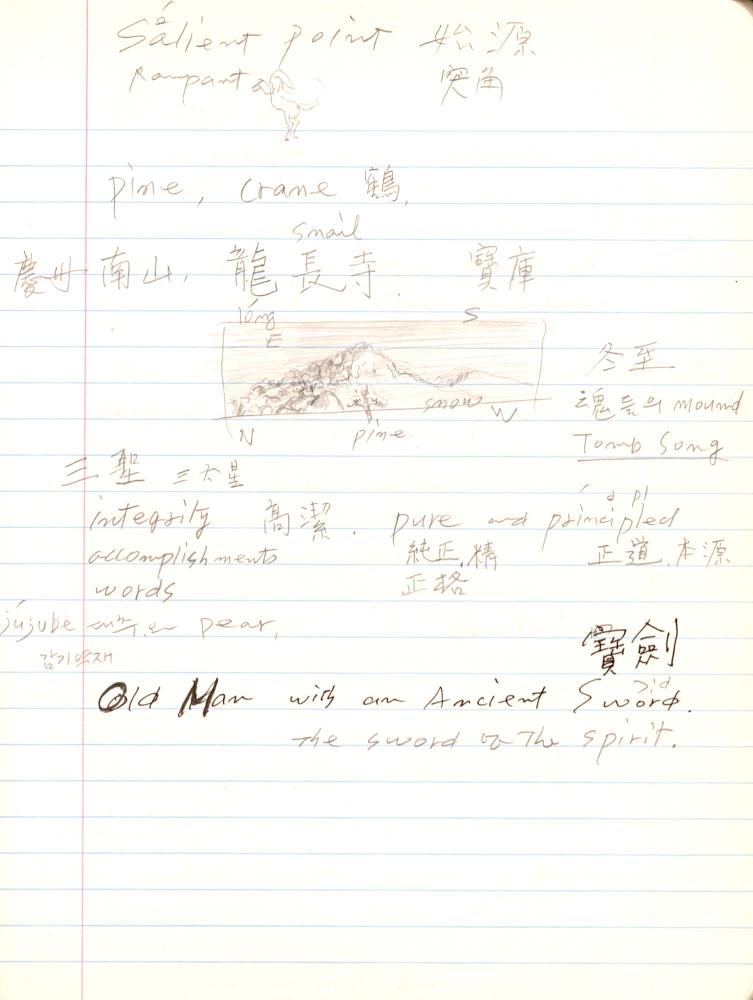 Salient point 始源
Rampant 突角
pine, crane 鶴,
snail
慶州 南山, 龍長寺. 寶庫
lóng
E S
冬至
魂들의 mound
snow W
N pine
Tomb Song
三聖 三大星
integrity 高潔. pure and principled
accomplishments 純正,精 正道,本源
words 正格
jujube 대추와 pear,
감기약재
寶劍
Old Man with an Ancient Sword.
The sword of The spirit.